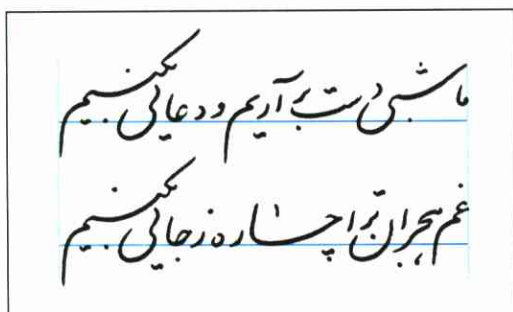 ما شبی دست برآریم و دعائی بکنیم
غم هجران ترا چاره ز جائی بکنیم